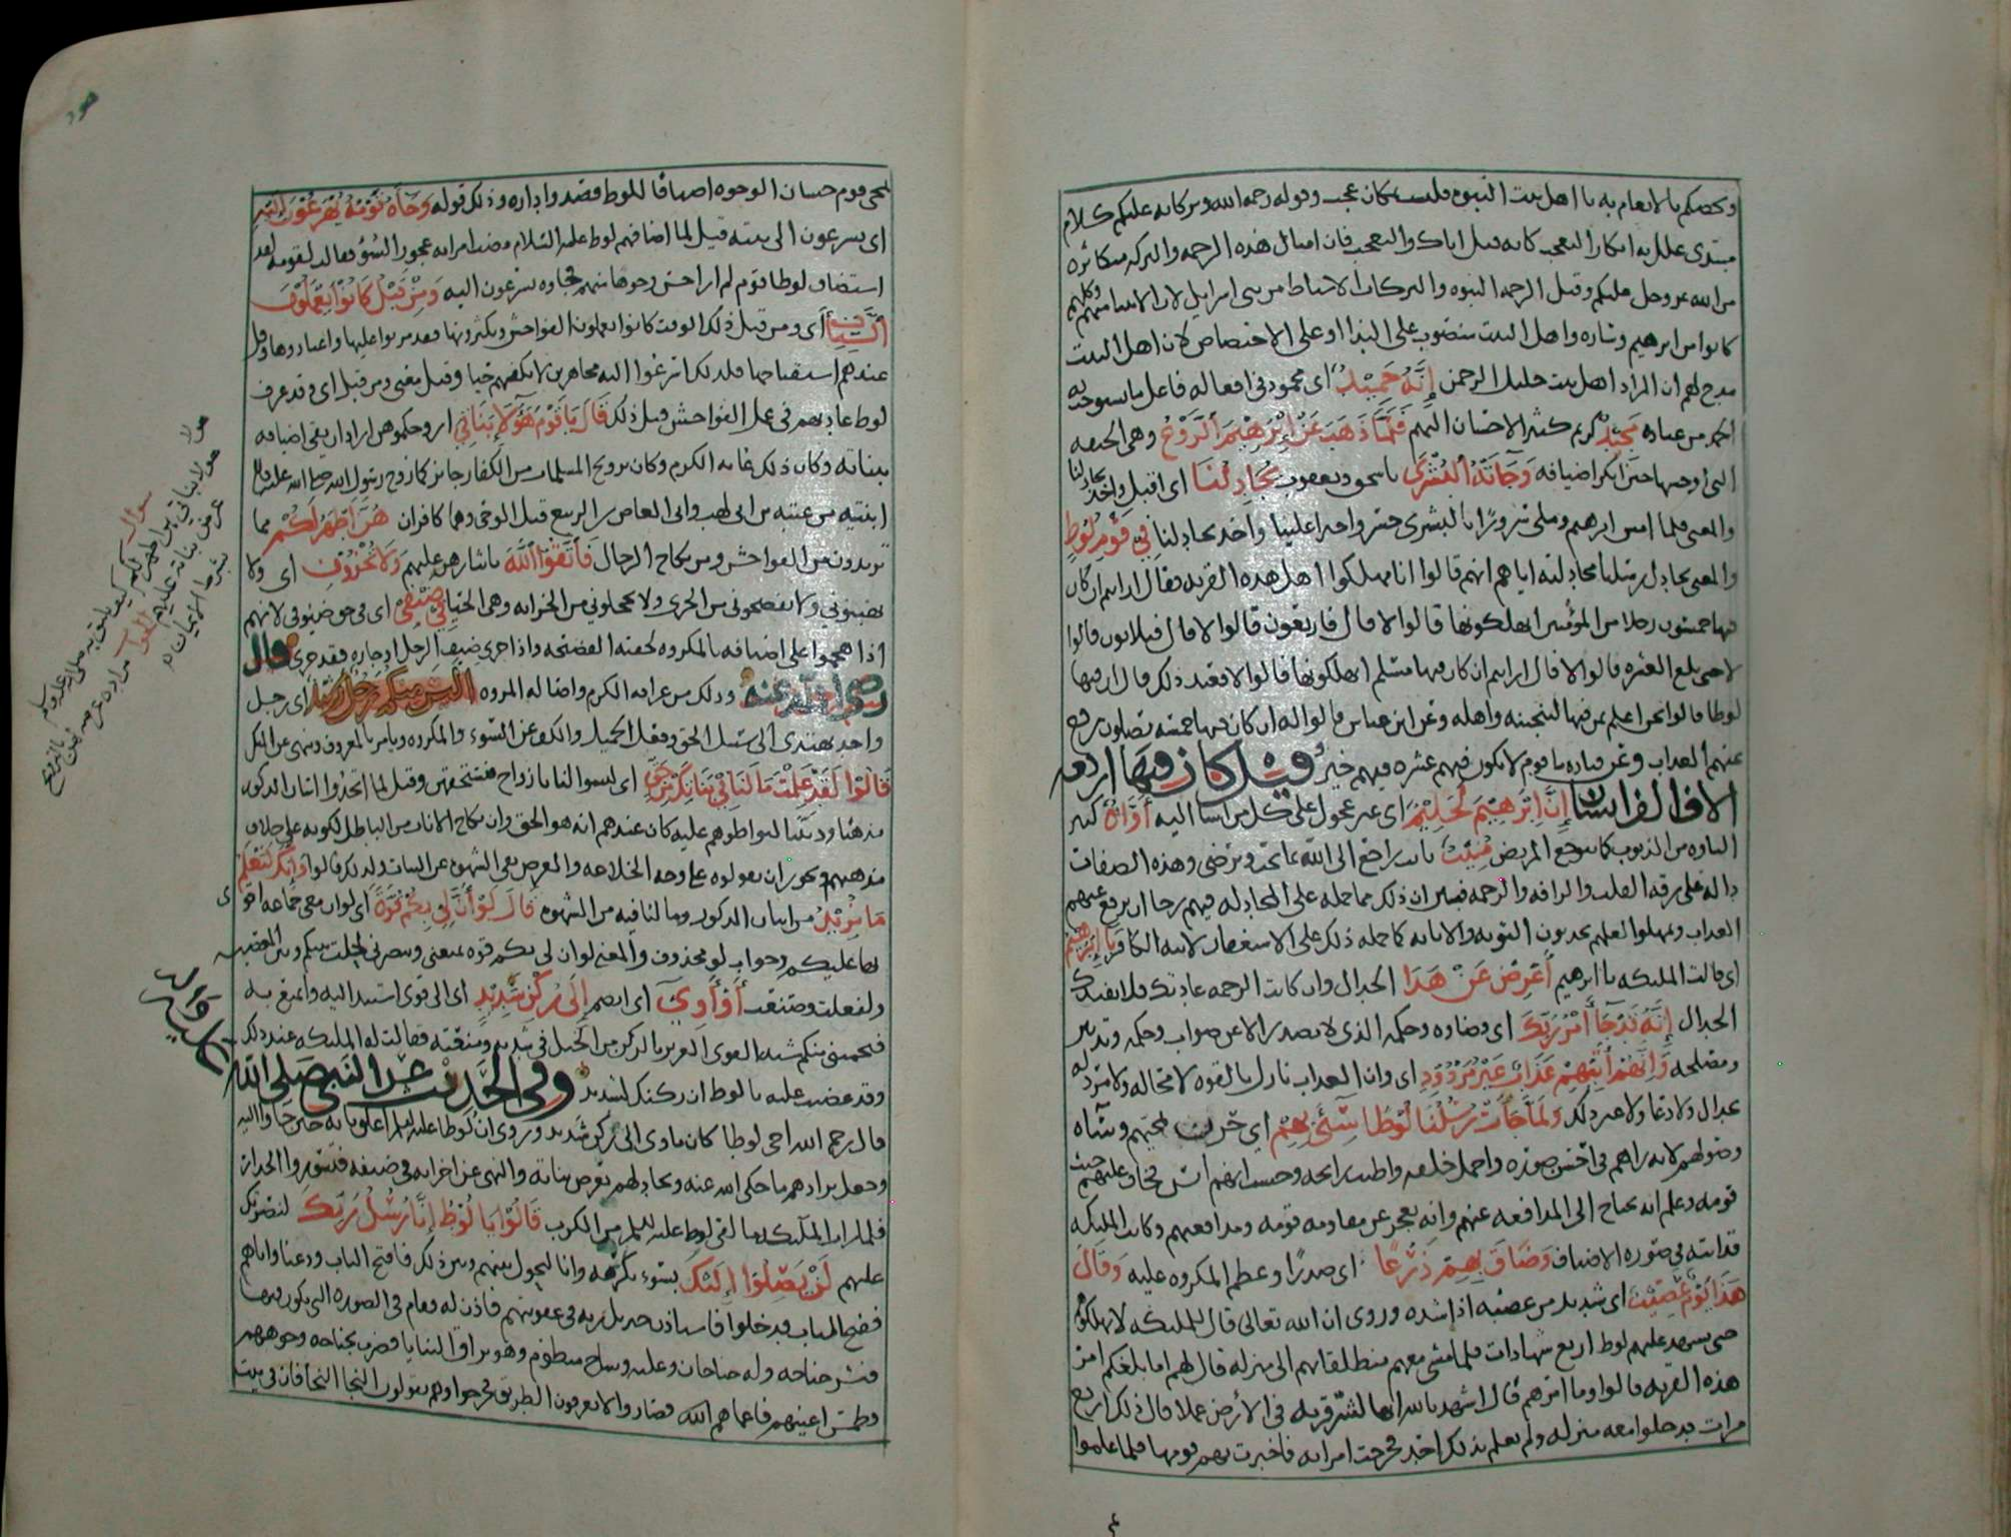 ويخصكم بالانعام به يا اهل بيت النبوه فليست مكان عجب وقوله رحمه الله وبركاته عليكم كلام
مبتدى علل به انكار التعجب كانه قيل اياك والتعجب فان امثال هذه الرحمه والبركه متكاثره
من الله عز وجل عليكم وقيل الرحمه النبوه والبركات الاسباط من بني اسرايل لان الانبيا منهم وكلهم
كانوا من ابرهيم وساره واهل البيت منصوب على الندا او على الاختصاص لان اهل البيت
مدح لهم ان المراد اهل بيت خليل الرحمن إِنَّهُ حَمِيْدٌ اى محمود في افعاله فاعل ما يستوجب به
الحمد من عباده مَجِيْدٌ كريم كثير الاحسان اليهم فَلَمَّا ذَهَبَ عَنْ إِبْرَهِيْمَ ٱلرَّوْعُ وهى الخيفه
التي اوجسها حين انكر اضيافه وَجَآتْهُ ٱلْبُشْرَى باسحق ويعقوب يُجَادِلُنَا اى اقبل واخذ يجادلنا
والمعنى فلما امن ابرهيم وملى سرورًا بالبشرى واخذ يجادلنا فِي قَوْمِ لُوْطٍ
والمعنى يجادل رسلنا مجادلته اياهم انهم قالوا انا مهلكوا اهل هذه القريه فقال ارايتم ان كان
فيها خمسون رجلا من المؤمنين اتهلكونها قالوا لا قال فاربعون قالوا لا قال فثلاثون قالوا
لا حتى بلغ العشره قالوا لا قال ارايتم ان كان فيها مسلم اتهلكونها قالوا لا فعند ذلك قال ان فيها
لوطا قالوا نحن اعلم بمن فيها لننجينه واهله وعن ابن عباس قالوا له ان كان فيها خمسه يصلون رفع
عنهم العذاب وعن قتاده ما قوم لا يكون فيهم عشره فيهم خير وقيل كان فيها اربعه
الاف الف انسان إِنَّ إِبْرَهِيْمَ لَحَلِيْمٌ اى غير عجول على كل من اسا اليه أَوَّاهٌ كثير
التاوه من الذنوب كما يتوجع المريض مُنِيْبٌ تايب راجع الى الله بما يحب ويرضى وهذه الصفات
داله على رقه القلب والرافه والرحمه فبين ان ذلك مما حمله على المجادله فيهم رجا ان يرفع عنهم
العذاب ويمهلوا لعلهم يحدثون التوبه والانابه كما حمله ذلك على الاستغفار لابيه الكافر يَا إِبْرَهِيْمُ
اى قالت المليكه يا ابرهيم أَعْرِضْ عَنْ هَذَا الجدال وان كانت الرحمه عادتك فلا يفيدك
الجدال إِنَّهُ قَدْ جَآ أَمْرُ رَبِّكَ اى وقضاوه وحكمه الذى لا يصدر الا عن صواب وحكمه وتدبير
ومصلحه وَإِنَّهُمْ أَتِيْهِمْ عَذَابٌ غَيْرُ مَرْدُوْدٍ اى وان العذاب نازل بالقوه لا محاله ولا مرد له
بجدال ولا دعا ولا غير ذلك وَلَمَّا جَآتْ رُسُلُنَا لُوْطًا سِيْٓئَ بِهِمْ اي حزن لمجيهم وسآه
وصولهم لانه راهم في احسن صوره واجمل خلقه واطيب رايحه وحسب انهم انس فخاف عليهم خبث
قومه وعلم انه يحتاج الى المدافعه عنهم وانه يعجز عن مقاومه قومه ومدافعتهم وكانت المليكه
قد اتته في صوره الاضياف وَضَاقَ بِهِمْ ذَرْعًا اى صدرًا وعظم المكروه عليه وَقَالَ
هَذَا يَوْمٌ عَصِيْبٌ اى شديد من عصبه اذا شده وروى ان الله تعالى قال للمليكه لا تهلكوهم
حتى يشهد عليهم لوط اربع شهادات فلما مشى معهم منطلقا بهم الى منزله قال لهم اما بلغكم امر
هذه القريه قالوا وما امرهم قال اشهد بالله انها لشر قريه في الأرض عملا قال ذلك اربع
مرات فدخلوا معه منزله ولم يعلم بذلك احد فخرجت امراته فاخبرت بهم قومها فلما علموا
هود
بمجى قوم حسان الوجوه اضيافا للوط قصدوا داره وذلك قوله وَجَآهُ قَوْمُهُ يُهْرَعُوْنَ إِلَيْهِ
اى يسرعون الى بيته قيل لما اضافهم لوط عليه السلام مضت امراته عجوز السُوْ فقالت لقومه لقد
استضاف لوطا قوم لم ار احسن وجوها منهم فجاوه يسرعون اليه وَمِنْ قَبْلُ كَانُوْا يَعْمَلُوْنَ
ٱلسَّيِّأتِ أى ومن قبل ذلك الوقت كانوا يعملون الفواحش ويكثرونها فقد مرنوا عليها واعتادوها وقل
عندهم استقباحها فلذلك اسرعوا اليه مجاهرين لا يكفهم حيا وقيل معنى ومن قبل اى وقد عرف
لوط عادتهم في عمل الفواحش قبل ذلك قَالَ يَا قَوْمِ هَؤُلَآ بَنَاتِي ازوجكموهن اراد ان يقى اضيافه
ببناته وكان ذلك غايه الكرم وكان تزويج المسلمات من الكفار جايز كما زوج رسول الله صلى الله عليه وسلم
ابنتيه من عتبه بن ابى لهب وابى العاص بن الربيع قبل الوحى وهما كافران هُنَّ أَطْهَرُ لَكُمْ مما
تريدون من الفواحش ومن نكاح الرجال فَٱتَّقُوْا ٱللَّهَ بايثارهن عليهم وَلَا تُخْزُوْنِ اى ولا
تهينوني ولا تفضحوني من الخزى ولا تخجلوني من الخزايه وهى الحيا فِي ضَيْفِيْ اى فى حق ضيوفى لانهم
اذا هجموا على اضيافه بالمكروه لحقته الفضيحه واذا خزى ضيف الرجل او جاره فقد خزى قال
رضي الله عنه وذلك من عراقه الكرم واصاله المروه أَلَيْسَ مِنْكُمْ رَجُلٌ رَشِيْدٌ اى رجل
واحد يهتدى الى سبيل الحق وفعل الجميل والكف عن السوء والمكروه ويامر بالمعروف وينهى عن المنكر
قَالُوْا لَقَدْ عَلِمْتَ مَا لَنَا فِي بَنَاتِكَ مِنْ حَقٍّ اى لسن لنا بازواج فنستحقهن وقيل لما اتخذوا اتيان الذكور
مذهبا ودينا لتواطوهم عليه كان عندهم انه هو الحق وان نكاح الاناث من الباطل لكونه على خلاف
مذهبهم ويجوز ان يقولوه على وجه الخلاعه والغرض نفى الشهوه عن البنات ولذلك قالوا وَإِنَّكَ لَتَعْلَمُ
مَا نُرِيْدُ من اتيان الذكور وما لنا فيه من الشهوه قَالَ لَوْ أَنَّ لِي بِكُمْ قُوَّةً اى لو ان معى جماعه اقوى
بها عليكم وجواب لو محذوف والمعنى لو ان لى بكم قوه بمعنى وينصرنى لحلت بينكم وبين المعصيه
ولفعلت وصنعت أَوْ أَوِيْٓ اى انضم إِلَى رُكْنٍ شَدِيْدٍ اى الى قوى استند اليه وامتنع به
فيحميني منكم شبه القوى العزيز بالركن من الجبل في شدته ومنعته فقالت له المليكه عند ذلك
وقد غضبت عليه يا لوط ان ركنك لشديد وفي الحديث عن النبي صلى الله
عليه واله
قال رحم الله اخى لوطا كان ياوى الى ركن شديد وروى ان لوطا عليه السلم اغلق بابه حين جاوا اليه
وجعل يرادهم ما حكى الله عنه ويجادلهم بعرض بناته والنهى عن اخزايه في ضيفه فتسوروا الجدار
فلما رات المليكه ما لقى لوط عليه السلم من الكرب قَالُوْا يَا لُوْطُ إِنَّا رُسُلُ رَبِّكَ لنصرتك
عليهم لَنْ يَصِلُوْا إِلَيْكَ بسوء تكرهه وانا لنحول بينهم وبين ذلك فافتح الباب ودعنا واياهم
ففتح الباب فدخلوا فاستاذن جبريل ربه في عقوبتهم فاذن له فقام في الصوره التي يكون فيها
فنشر جناحه وله جناحان وعليه وشاح منظوم وهو براق الثنايا فضرب بجناحه وجوههم
وطمس اعينهم فاعماهم الله فصاروا لا يعرفون الطريق فخرجوا وهم يقولون النجا النجا فان في بيت
سوال
هولا بناتي هن اطهر لكم كيف يليق به صلى الله عليه وسلم
عرض بناته عليهم الجواب مراده عرضهن بالتزويج
بشرط الايمان